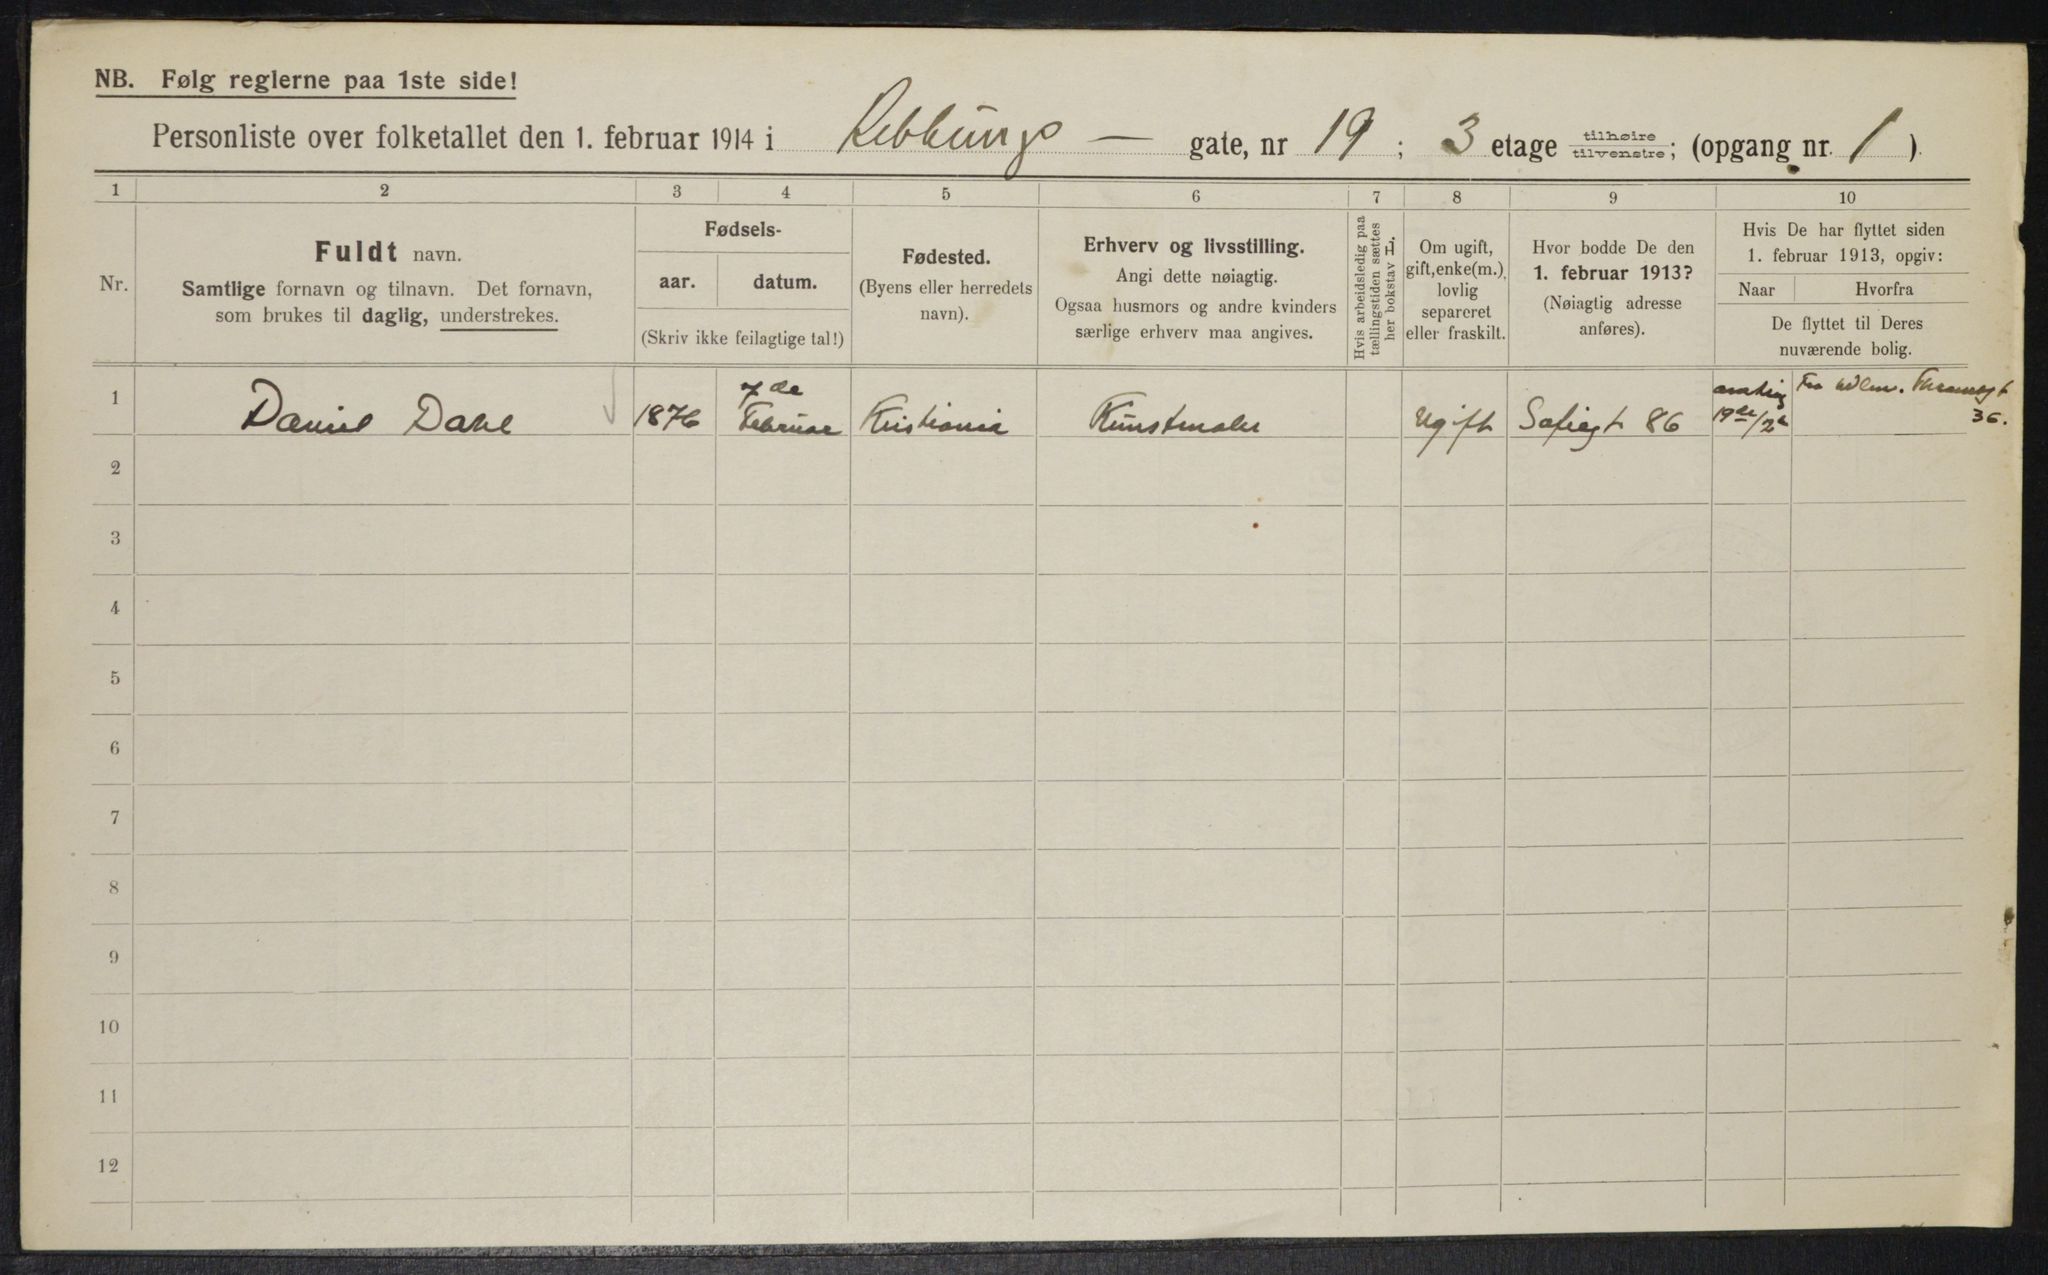 NB. Følg reglerne paa 1ste side!
Personliste over folketallet den 1. februar 1914 i Kebbungs — gate, nr 19; 3 etage tilhøire/tilvenstre; (opgang nr. 1).
1 2 3 4 5 6 7 8 9 10
Nr.
Fuldt navn.
Samtlige fornavn og tilnavn. Det fornavn,
som brukes til daglig, understrekes.
Fødsels-
aar. datum.
(Skriv ikke feilagtige tal!)
Fødested.
(Byens eller herredets
navn).
Erhverv og livsstilling.
Angi dette nøiagtig.
Ogsaa husmors og andre kvinders
særlige erhverv maa angives.
Hvis arbeidsledig paa
tællingstiden sættes
her bokstav L.
Om ugift,
gift, enke(m.),
lovlig
separeret
eller fraskilt.
Hvor bodde De den
1. februar 1913?
(Nøiagtig adresse
anføres).
Hvis De har flyttet siden
1. februar 1913, opgiv:
Naar Hvorfra
De flyttet til Deres
nuværende bolig.
7de
1 Daniel Dahl 1876 Februar Kristiania Kunstmaler Ugift Sofiegt 86
36.
2
3
4
5
6
7
8
9
10
11
12